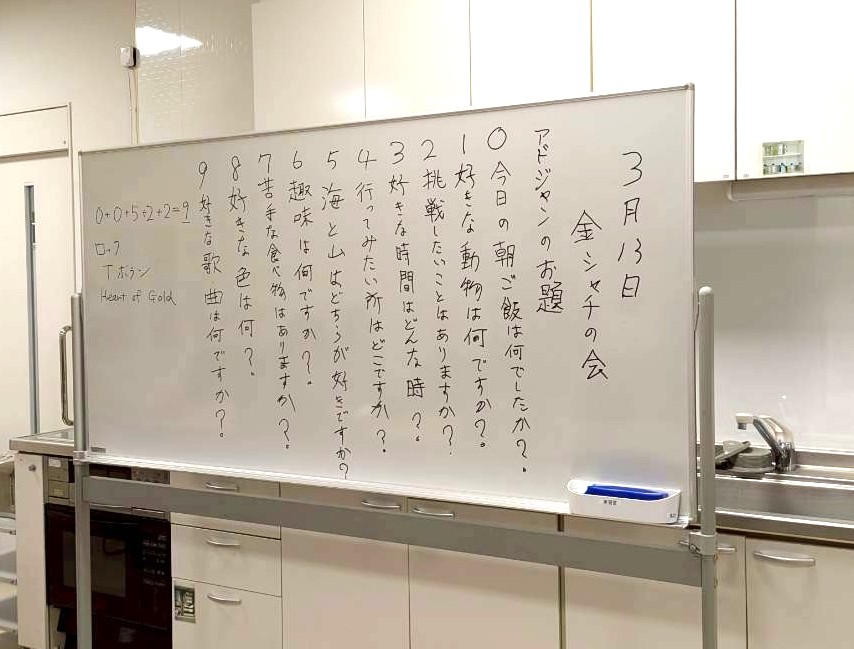 3月13日
金シャチの会
アドジャンのお題
0 今日の朝ご飯は何でしたか?。
1 好きな動物は何ですか?。
2 挑戦したいことはありますか?
3 好きな時間はどんな時?
4 行ってみたい所はどこですか?
5 海と山はどちらが好きですか?
6 趣味は何ですか?。
7 苦手な食べ物はありますか?。
8 好きな色は何?
9 好きな歌曲は何ですか?。
0+0+5+2+2=9
Tボラン
Heart of Gold